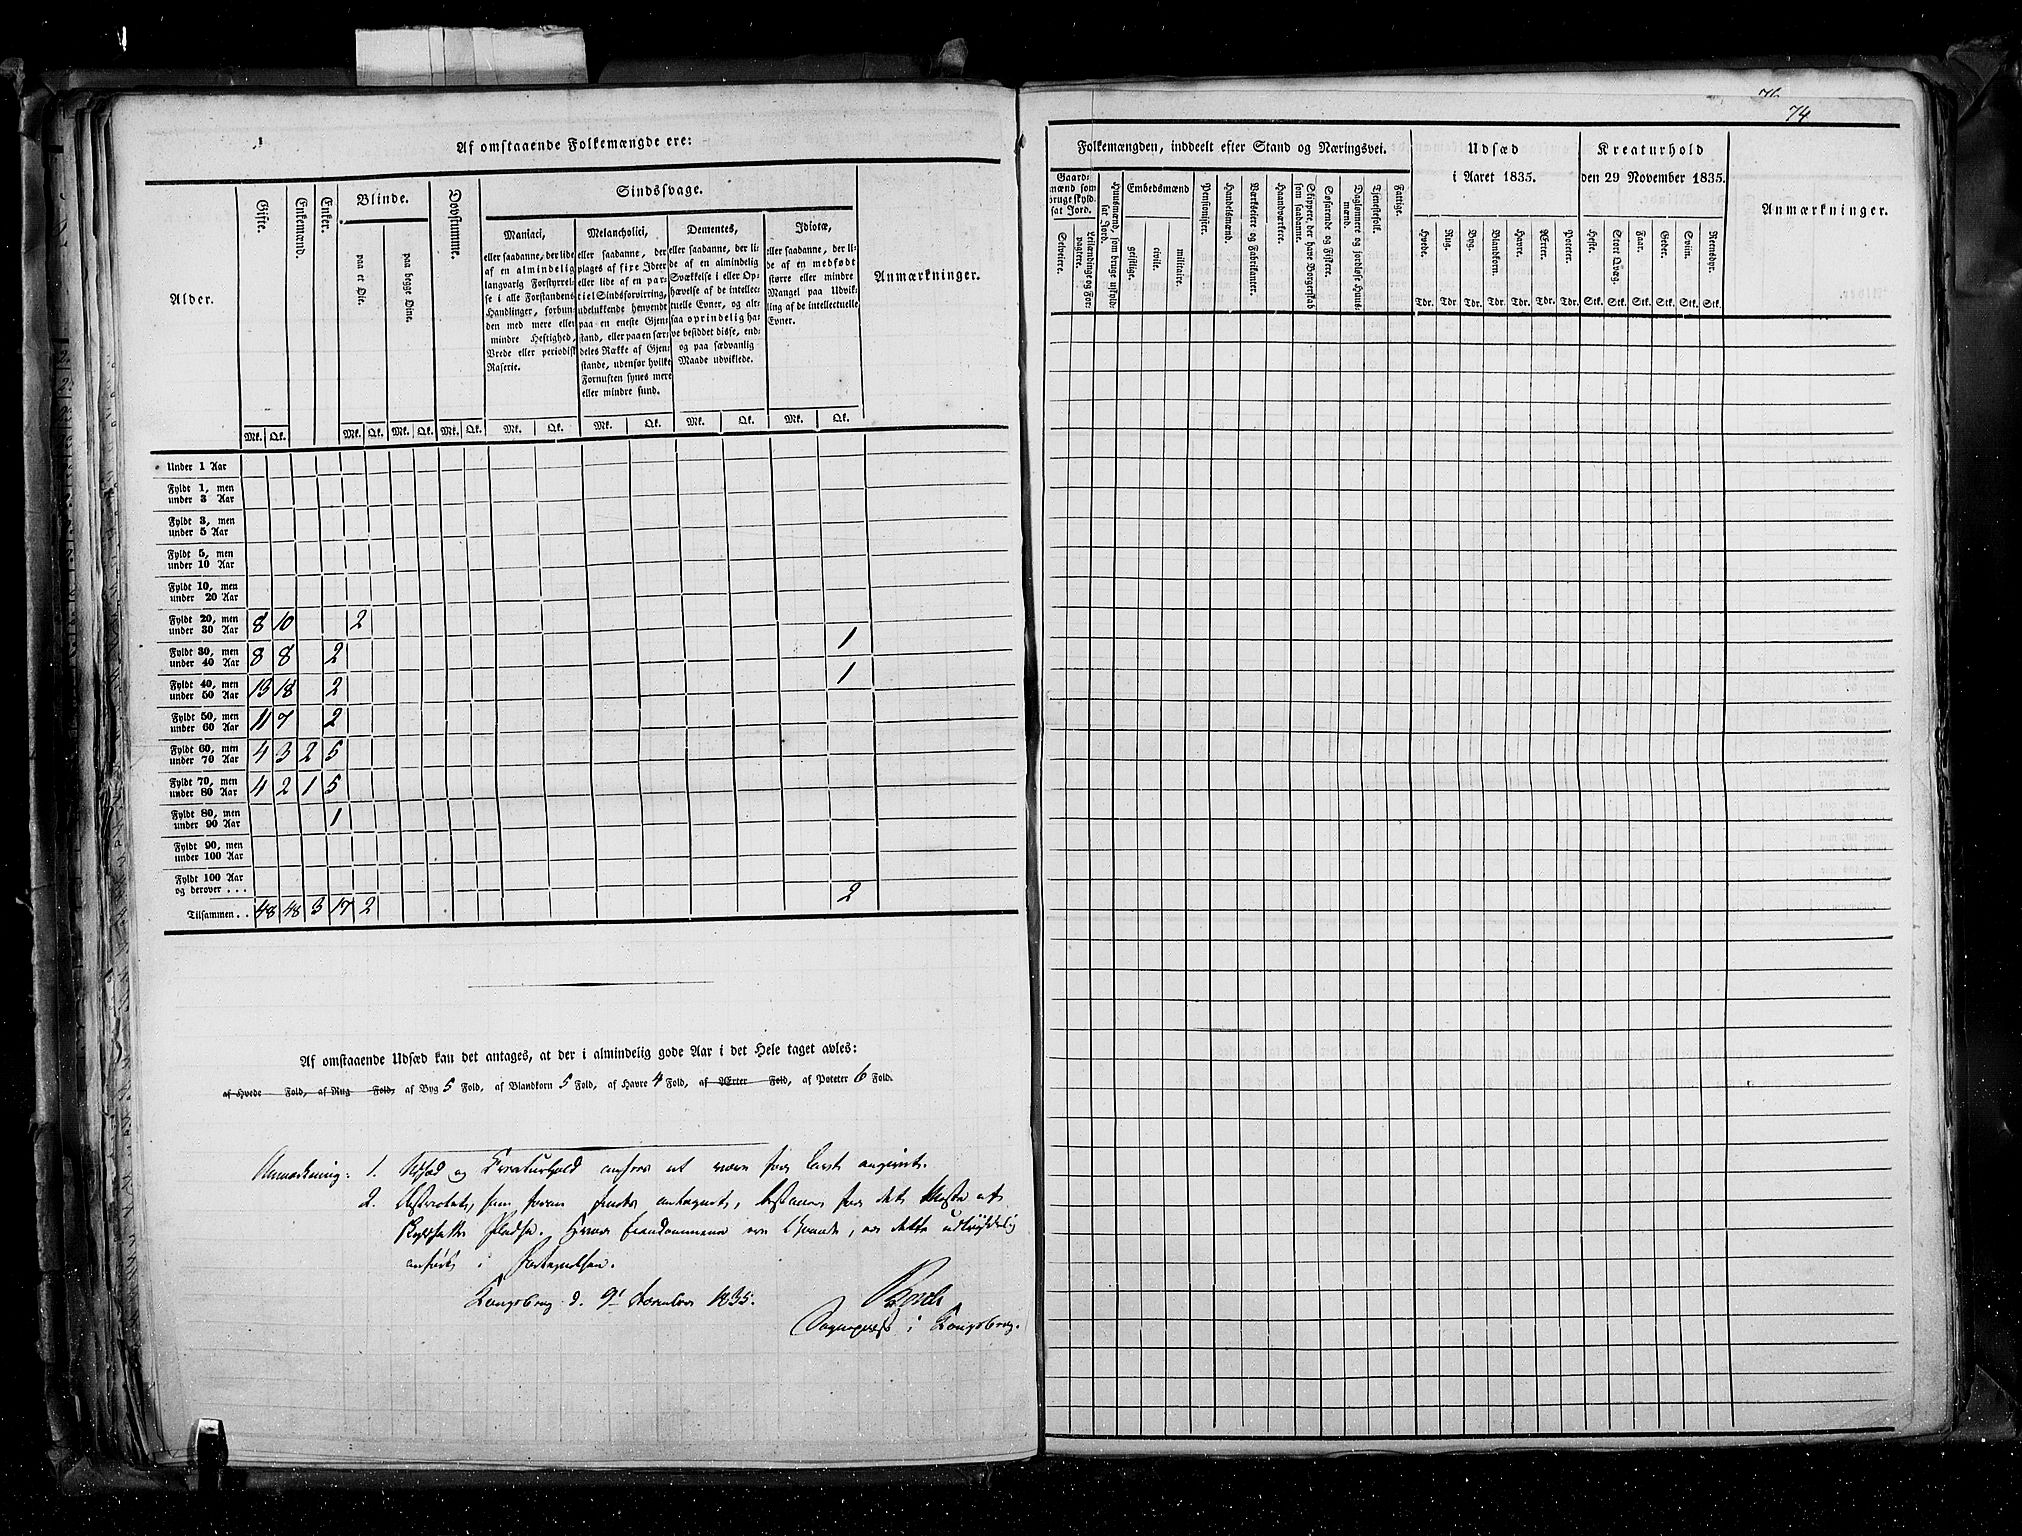 76
74
Af omstaaende Folkemængde ere:
Alder.
Gifte.
Enkemænd.
Enker.
Blinde.
paa et Øie.
paa begge Øine.
Døvstumme.
Sindssvage.
Maniaci,
eller saadanne, der lide
af en almindelig
langvarig Forstyrrel-
se i alle Forstandens
Handlinger, forbun-
den med mere eller
mindre Heftighed,
Vrede eller periodisk
Raserie.
Melancholici,
eller saadanne, der
plages af fixe Ideer
eller lide af en par-
tiel Sindsforvirring,
udelukkende henvendt
paa en eneste Gjen-
stand, eller paa en sær-
deles Række af Gjen-
stande, udenfor hvilke
Fornuften synes mere
eller mindre sund.
Dementes,
eller saadanne, der li-
de af en almindelig
Svækkelse i eller Op-
hævelse af de intellec-
tuelle Evner, og alt-
saa oprindelig ha-
ve besiddet disse, end-
og paa sædvanlig
Maade udviklede.
Idiotæ,
eller saadanne, der li-
de af en medfødt
større eller mindre
Mangel paa Udvik-
ling af de intellectuelle
Evner.
Anmærkninger.
Mk. Qk. Mk. Qk. Mk. Qk. Mk. Qk. Mk. Qk. Mk. Qk. Mk. Qk. Mk. Qk.
Under 1 Aar
Fyldt 1, men
under 3 Aar
Fyldt 3, men
under 5 Aar
Fyldt 5, men
under 10 Aar
Fyldt 10, men
under 20 Aar
Fyldt 20, men
under 30 Aar 8 10 2
Fyldt 30, men
under 40 Aar 8 8 2 1
Fyldt 40, men
under 50 Aar 13 18 2 1
Fyldt 50, men
under 60 Aar 11 7 2
Fyldt 60, men
under 70 Aar 4 3 2 5
Fyldt 70, men
under 80 Aar 4 2 1 5
Fyldt 80, men
under 90 Aar 1
Fyldt 90, men
under 100 Aar
Fyldt 100 Aar
og derover . . .
Tilsammen . . 48 48 3 17 2 2
Af omstaaende Udsæd kan det antages, at der i almindelig gode Aar i det Hele taget avles:
af Hvede Fold, af Rug Fold, af Byg 5 Fold, af Blandkorn 5 Fold, af Havre 4 Fold, af Ærter Fold, af Poteter 6 Fold.
Anmærkning: 1. Udsæd og Creaturhold anføres at være for lavt angivet.
2. Districtet, som foran findes antegnet, bestaaer for det Meste af
Pladse. ere , er dette udtrykkelig
anført i Fortegnelsen.
Kongsberg d. 9 December 1835.
Sognepræst i Kongsberg.
Folkemængden, inddeelt efter Stand og Næringsvei.
Gaard-
mænd som
bruge skyld-
sat Jord.
Selveiere.
Leilændinge og For-
pagtere.
Huusmænd, som bruge skyld-
sat Jord.
Embedsmænd
geistlige.
civile.
militaire.
Pensionister.
Handelsmænd.
Værkseiere og Fabrikanter.
Haandværkere.
Skippere, der have Borgerskab
som saadanne.
Søfarende og Fiskere.
Daglønnere og jordløse Huus-
mænd.
Tjenestefolk.
Fattige.
Udsæd
i Aaret 1835.
Hvede. Rug. Byg. Blandkorn. Havre. Ærter. Poteter.
Tdr. Tdr. Tdr. Tdr. Tdr. Tdr. Tdr.
Kreaturhold
den 29 November 1835.
Heste. Stort Qvæg. Faar. Geder. Sviin. Rensdyr.
Stk. Stk. Stk. Stk. Stk. Stk.
Anmærkninger.